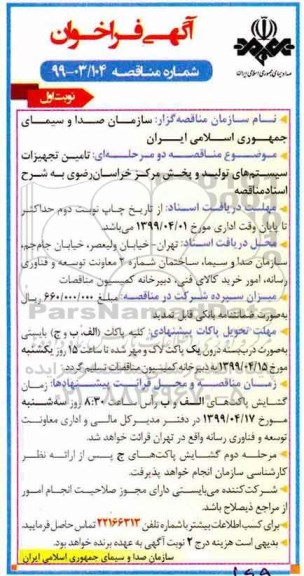 آگهی فراخوان
شماره مناقصه ۹۹-۰۳/۱۰۴
صدا و سیمای جمهوری اسلامی ایران
نوبت اول
نام سازمان مناقصه‌گزار: سازمان صدا و سیمای
جمهوری اسلامی ایران
موضوع مناقصه دو مرحله‌ای: تامین تجهیزات
سیستم‌های تولید و پخش مرکز خراسان‌رضوی به شرح
اسناد مناقصه
مهلت دریافت اسناد: از تاریخ چاپ نوبت دوم حداکثر
تا پایان وقت اداری مورخ ۱۳۹۹/۰۴/۰۱ می‌باشد.
محل دریافت اسناد: تهران - خیابان ولیعصر، خیابان جام‌جم،
سازمان صدا و سیما، ساختمان شماره ۲ معاونت توسعه و فناوری
رسانه، امور خرید کالای فنی، دبیرخانه کمیسیون مناقصات
میزان سپرده شرکت در مناقصه: مبلغ ۶۶۰/۰۰۰/۰۰۰ ریال
به‌صورت ضمانتنامه بانکی قابل تمدید
مهلت تحویل پاکات پیشنهادی: کلیه پاکات (الف، ب و ج) بایستی
به‌صورت دربسته درون یک پاکت لاک و مهر شده تا ساعت ۱۵ روز یکشنبه
مورخ ۱۳۹۹/۰۴/۱۵ به دبیرخانه کمیسیون مناقصات تسلیم گردد.
زمان مناقصه و محل قرائت پیشنهادها: زمان
گشایش پاکت‌های الف و ب راس ساعت ۸:۳۰ روز سه‌شنبه
مورخ ۱۳۹۹/۰۴/۱۷ در دفتر مدیرکل مالی و اداری معاونت
توسعه و فناوری رسانه واقع در تهران قرائت خواهد شد.
مرحله دوم گشایش پاکت‌های ج پس از ارائه نظر
کارشناسی سازمان انجام خواهد پذیرفت.
شرکت‌کننده می‌بایستی دارای مجوز صلاحیت انجام امور
از مراجع ذیصلاح باشد.
برای کسب اطلاعات بیشتر با شماره تلفن ۲۲۱۶۶۳۱۳ تماس حاصل فرمایید.
بدیهی است هزینه درج ۲ نوبت آگهی به عهده برنده خواهد بود.
سازمان صدا و سیمای جمهوری اسلامی ایران